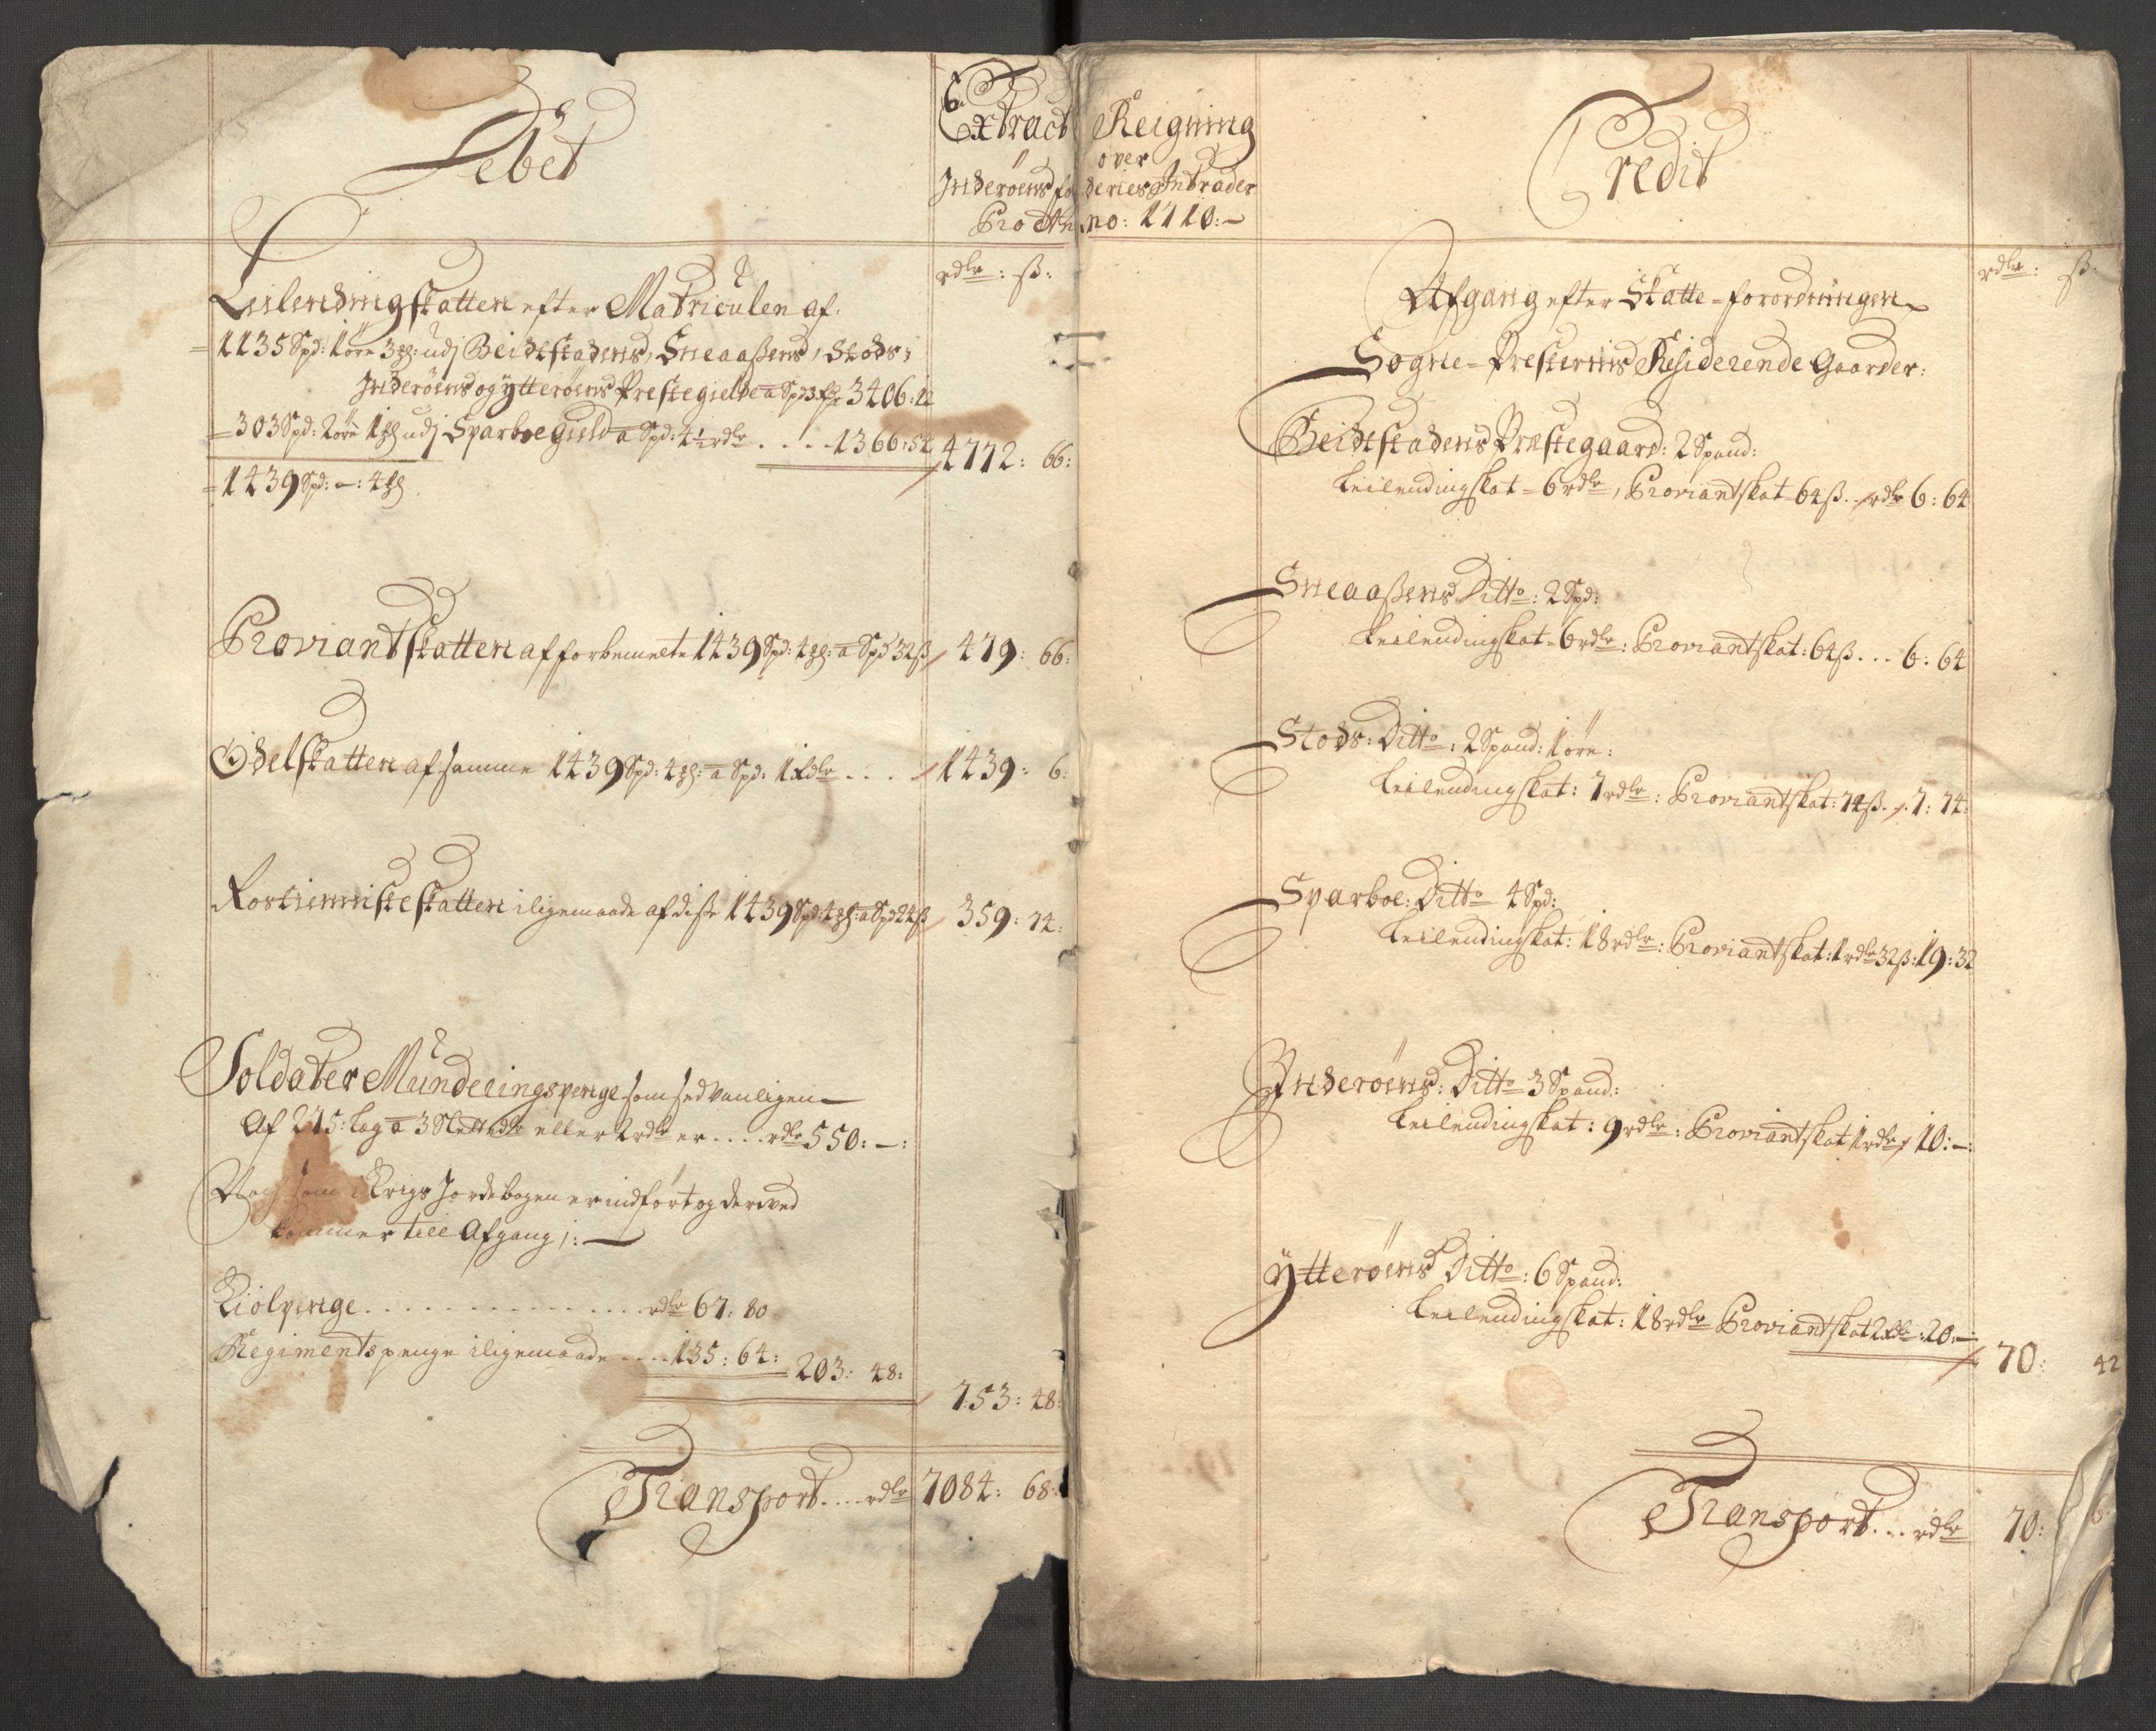 Debet
6.
Extract Reigning
over
Inderøens fo deries Intrader
Pro An no: 1710:-
rdlr: ß:
Leilendingskatten efter Matriculen af.
1135 Spd: 1 øre 3 : udj Beidstadens, Sneaaßens, Stods,
Inderøens og Ytterøens Prestegield a Spd 3 rdr 3406: 12
303 Spd: 2 øre 1 udj Sparboe gield a Spd: 4½ rdlr . . . . 1366: 54 4772: 66:
1439 Spd: -: 4
Proviantskatten af forbemelte 1439 Spd: 4 : a Spd 32 ß 479: 66:
Odelskatten af samme 1439 Spd: 4 : a Spd: 1 rdlr . . . . 1439: 6:
Rostienniste skatten iligemaade af diße 1439 Spd: 4 : a Spd 24 ß 359: 74:
Soldater Munderings penge som sedvanligen
Af 275: Lag a 3 Slettedlr eller 2 rdlr er . . . . rdlr 550: -:
som i Krigs Jordebogen er indført og derved
kommer till Afgang j: -
Kiølpenge . . . . . . . . . . . . . . . rdlr 67: 80
Regimentspenge iligemaade . . . . 135: 64: 203: 48:
753: 48:
Transport . . . . rdlr 7084: 68:
Credit
rdlr: ß:
Afgang efter Skatte-forordningen
Sogne-Presternis Residerende Gaarder:
Beidstadens Præstegaard: 2 Spand:
Leilendingskat = 6 rdlr, Proviantskat = 64 ß . . rdlr 6: 64
Sneaaßens Ditto: 2 Spd:
Leilendingskat = 6 rdlr: Proviantskat: 64 ß . . . 6: 64
Stods: Ditto: 2 Spand: 1 øre:
Leilendingskat: 7 rdlr: Proviantskat: 74 ß . . 7: 74:
Sparboe: Ditto 4 Spd:
Leilendingskat: 18 rdlr: Proviantskat: 1 rdlr 32 ß: 19: 32
Inderøens: Ditto 3 Spand:
Leilendingskat: 9 rdlr: Proviantskat 1 rdlr 10: -:
Ytterøens Ditto: 6 Spand:
Leilendingskat: 18 rdlr Proviantskat 2 rdlr: 20: -
70: 42
Transport . . . rdlr 70: